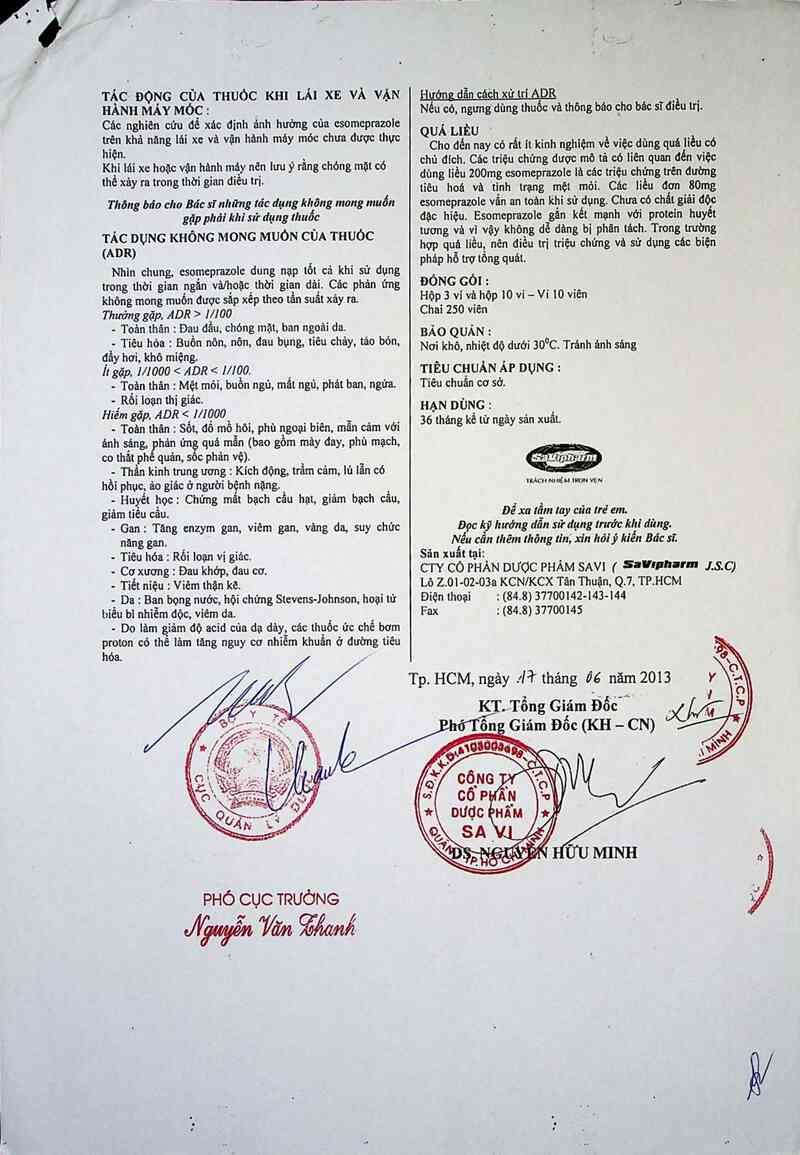 TÁC ĐỘNG CỦA THUỐC KHI LÁI XE VÀ VẬN
HÀNH MÁY MÓC :
Các nghiên cứu để xác định ảnh hưởng của esomeprazole
trên khả năng lái xe và vận hành máy móc chưa được thực
hiện.
Khi lái xe hoặc vận hành máy nên lưu ý rằng chóng mặt có
thể xảy ra trong thời gian điều trị.
Thông báo cho Bác sĩ những tác dụng không mong muốn
gặp phải khi sử dụng thuốc
TÁC DỤNG KHÔNG MONG MUỐN CỦA THUỐC
(ADR)
Nhìn chung, esomeprazole dung nạp tốt cả khi sử dụng
trong thời gian ngắn và/hoặc thời gian dài. Các phản ứng
không mong muốn được sắp xếp theo tần suất xảy ra.
Thường gặp, ADR > 1/100
- Toàn thân : Đau đầu, chóng mặt, ban ngoài da.
- Tiêu hóa : Buồn nôn, nôn, đau bụng, tiêu chảy, táo bón,
đầy hơi, khô miệng.
Ít gặp, 1/1000 < ADR < 1/100.
- Toàn thân : Mệt mỏi, buồn ngủ, mất ngủ, phát ban, ngứa.
- Rối loạn thị giác.
Hiếm gặp, ADR < 1/1000
- Toàn thân : Sốt, đổ mồ hôi, phù ngoại biên, mẫn cảm với
ánh sáng, phản ứng quá mẫn (bao gồm mày đay, phù mạch,
co thắt phế quản, sốc phản vệ).
- Thần kinh trung ương : Kích động, trầm cảm, lú lẫn có
hồi phục, ảo giác ở người bệnh nặng.
- Huyết học : Chứng mất bạch cầu hạt, giảm bạch cầu,
giảm tiểu cầu.
- Gan : Tăng enzym gan, viêm gan, vàng da, suy chức
năng gan.
- Tiêu hóa : Rối loạn vị giác.
- Cơ xương : Đau khớp, đau cơ.
- Tiết niệu : Viêm thận kẽ.
- Da : Ban bọng nước, hội chứng Stevens-Johnson, hoại tử
biểu bì nhiễm độc, viêm da.
- Do làm giảm độ acid của dạ dày, các thuốc ức chế bơm
proton có thể làm tăng nguy cơ nhiễm khuẩn ở đường tiêu
hóa.
Hướng dẫn cách xử trí ADR
Nếu có, ngưng dùng thuốc và thông báo cho bác sĩ điều trị.
QUÁ LIỀU
Cho đến nay có rất ít kinh nghiệm về việc dùng quá liều có
chủ đích. Các triệu chứng được mô tả có liên quan đến việc
dùng liều 200mg esomeprazole là các triệu chứng trên đường
tiêu hoá và tình trạng mệt mỏi. Các liều đơn 80mg
esomeprazole vẫn an toàn khi sử dụng. Chưa có chất giải độc
đặc hiệu. Esomeprazole gắn kết mạnh với protein huyết
tương và vì vậy không dễ dàng bị phân tách. Trong trường
hợp quá liều, nên điều trị triệu chứng và sử dụng các biện
pháp hỗ trợ tổng quát.
ĐÓNG GÓI :
Hộp 3 vỉ và hộp 10 vỉ – Vỉ 10 viên
Chai 250 viên
BẢO QUẢN :
Nơi khô, nhiệt độ dưới 30°C. Tránh ánh sáng
TIÊU CHUẨN ÁP DỤNG :
Tiêu chuẩn cơ sở.
HẠN DÙNG :
36 tháng kể từ ngày sản xuất.
SaVipharm
TRÁCH NHIỆM TRỌN VẸN
Để xa tầm tay của trẻ em.
Đọc kỹ hướng dẫn sử dụng trước khi dùng.
Nếu cần thêm thông tin, xin hỏi ý kiến Bác sĩ.
Sản xuất tại:
CTY CỔ PHẦN DƯỢC PHẨM SAVI ( SaVipharm J.S.C)
Lô Z.01-02-03a KCN/KCX Tân Thuận, Q.7, TP.HCM
Điện thoại : (84.8) 37700142-143-144
Fax : (84.8) 37700145
Tp. HCM, ngày 17 tháng 06 năm 2013
KT. Tổng Giám Đốc
Phó Tổng Giám Đốc (KH – CN)
S.Đ.K.K.D:4103003698-C.T.C.P
CÔNG TY
CỔ PHẦN
DƯỢC PHẨM
SA VI
QUẬN 7-TP.HỒ CHÍ MINH
DS. NGUYỄN HỮU MINH
BỘ Y TẾ
CỤC QUẢN LÝ DƯỢC
PHÓ CỤC TRƯỞNG
Nguyễn Văn Thanh
98-C.T.C.P
Y
I
M
Í MINH